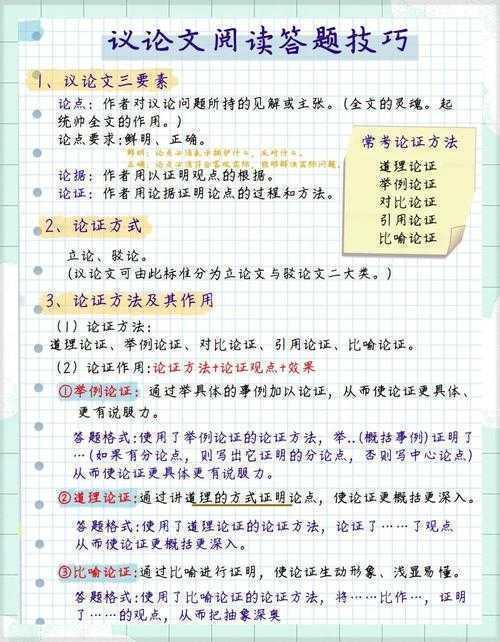 议论文阅读答题技巧
1、议论文三要素
论点：作者对议论问题所持的见解或主张。(全文的灵魂。起
统帅全文的作用。)
论点要求:鲜明、正确。
鲜明：论点必须表示拥护什么，反对什么。
正确：论点必须符合客观实际，能够解决实际问题。
论据：作者用以证明观点的根据。
论证：作者用论据证明论点的过程和方法。
常考论证方法
道理论证
举例论证
对比论证
引用论证
比喻论证
2、论证方式
立论、驳论。
(议论文可由此标准分为立论文与驳论文二大类。)
3、论证方法及其作用
(1)论证方法：
道理论证、举例论证、对比论证、引用论证、比喻论证。
(2)论证作用:论证方法+论证观点+效果
①举例论证：通过举具体的事例加以论证，从而使论证更具体、
更有说服力。
答题格式:使用了举例论证的论证方法，举..(概括事例)证明了
…(如果有分论点，则写出它证明的分论点，否则写中心论点)
从而使论证更具体更有说服力。
②道理论证:通过讲道理的方式证明论点，使论证更概括更深入。
答题格式:使用了道理论证的论证方法，论证了……了观点
从而使论证更概括更深入。
③比喻论证:通过比喻进行证明，使论证生动形象、浅显易懂。
答题格式:使用了比喻论证的论证方法，将……比作…，证明
了……的观点，从而把抽象深奥